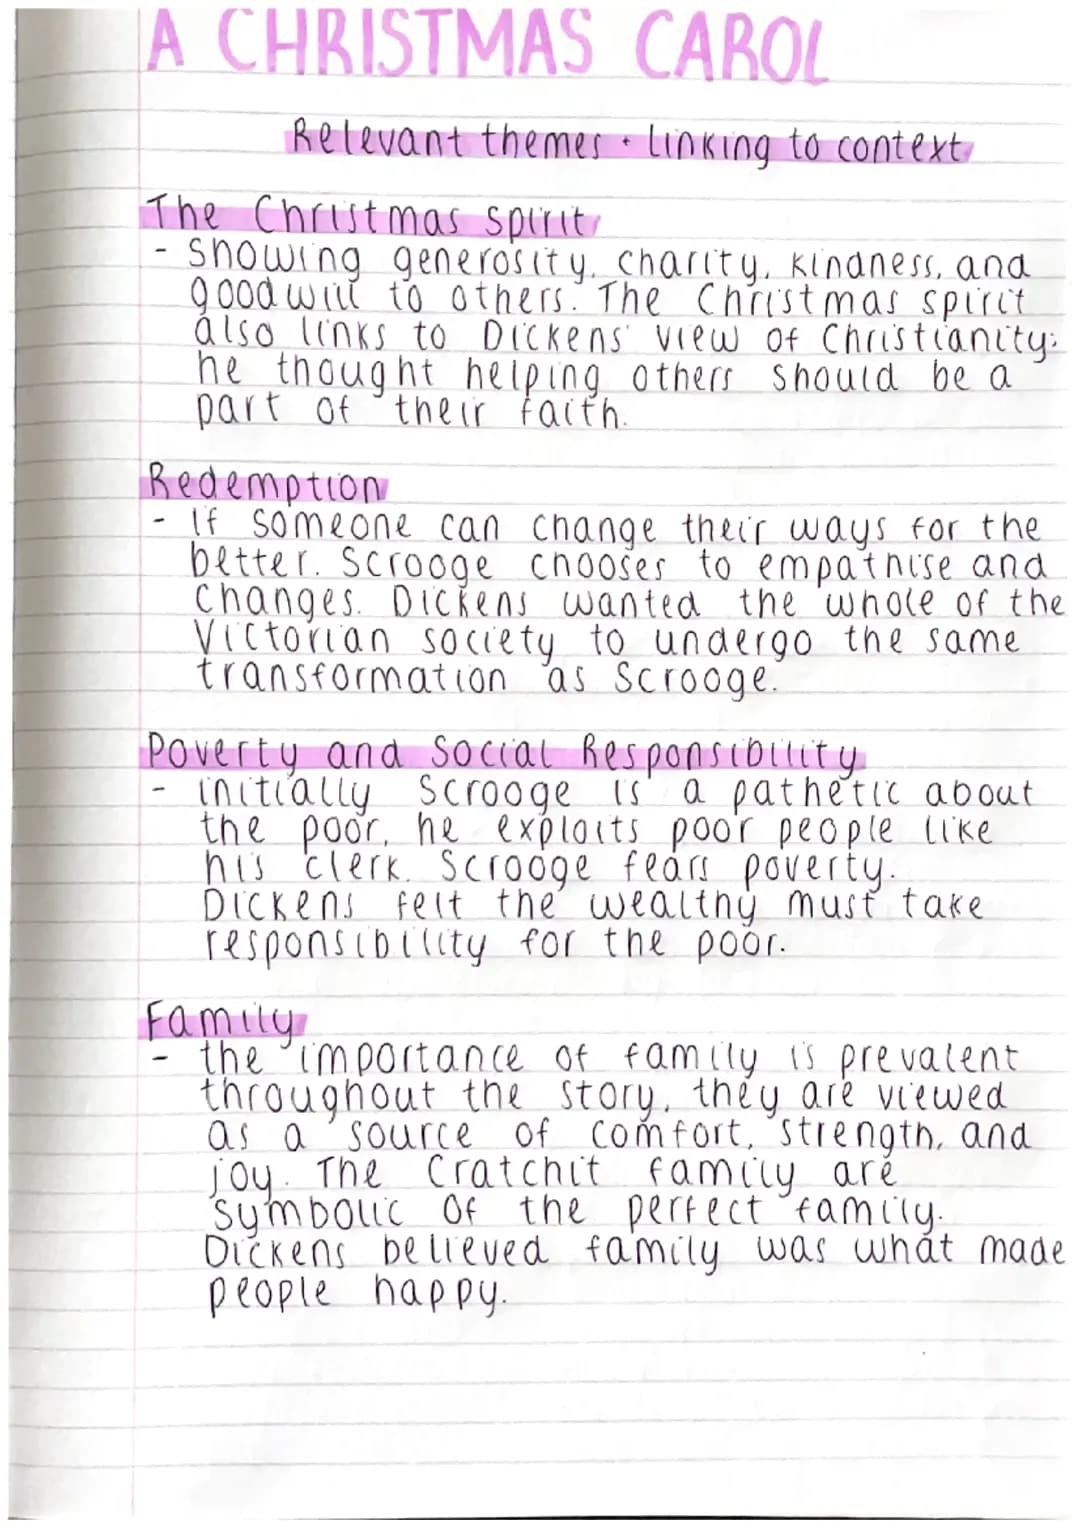 A CHRISTMAS CAROL
Relevant themes + linking to context
The Christmas Spirit
- showing generosity, charity, kindness, and
goodwill to others. The Christmas spirit
also links to Dickens' view of Christianity:
he thought helping others should be a
part of their faith.
Redemption
- If someone can change their ways for the
better. Scrooge chooses to empathise and
changes. Dickens wanted the whole of the
Victorian society to undergo the same
transformation as Scrooge.
Poverty and Social Responsibility
- initially Scrooge is a pathetic about
the poor, he exploits poor people like
his clerk. Scrooge fears poverty.
Dickens felt the wealthy must take
responsibility for the poor.
Family
- the importance of family is prevalent
throughout the story, they are viewed
as a source of comfort, strength, and
joy. The Cratchit family are
symbolic of the perfect family.
Dickens believed family was what made
people happy.